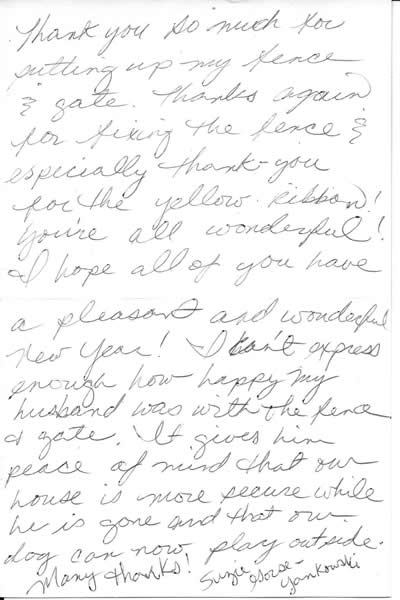 Thank you so much for
putting up my fence
& gate. Thanks again
for fixing the fence &
especially thank-you
for the yellow ribbon!
You're all wonderful!
I hope all of you have
a pleasant and wonderful
New Year! I can't express
enough how happy my
husband was with the fence
& gate. It gives him
peace of mind that our
house is more secure while
he is gone and that our
dog can now play outside.
Many thanks! Suzie
Yankowski